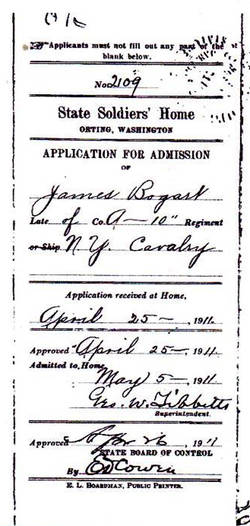 Applicants must not fill out any part of the
blank below.
No. 2109
State Soldiers' Home
ORTING, WASHINGTON
APPLICATION FOR ADMISSION
OF
James Bogart
Late of Co. A — 10" Regiment
or Ship N.Y. Cavalry
Application received at Home,
April 25 — , 1911
Approved April 25 — , 1911
Admitted to Home,
May 5 — , 1911
Geo. W. Tibbetts
Superintendent.
Approved Apr 26 , 1911
STATE BOARD OF CONTROL
By Cowen
E. L. BOARDMAN, PUBLIC PRINTER.